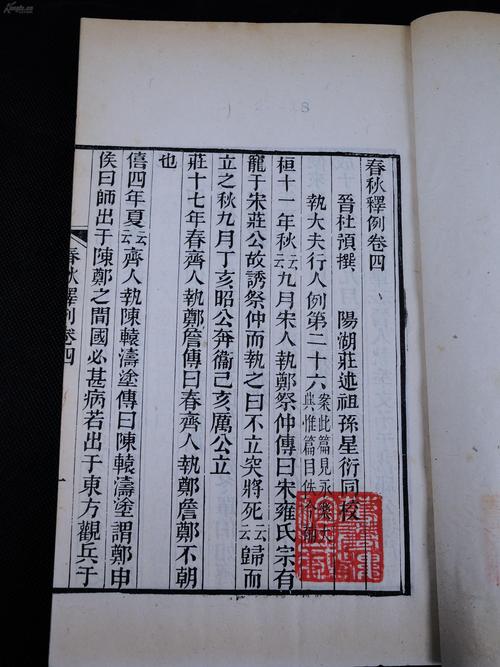 春秋釋例卷四
晉杜預撰 陽湖莊述祖孫星衍同校
執大夫行人例第二十六 案此篇見永樂大典惟篇目佚今補
桓十一年秋云云九月宋人執鄭祭仲傳曰宋雍氏宗有
寵于宋莊公故誘祭仲而執之曰不立突將死云云歸而
立之秋九月丁亥昭公奔衞己亥厲公立
莊十七年春齊人執鄭詹傳曰春齊人執鄭詹鄭不朝
也
僖四年夏云云齊人執陳轅濤塗傳曰陳轅濤塗謂鄭申
侯曰師出于陳鄭之間國必甚病若出于東方觀兵于
春秋釋例卷四